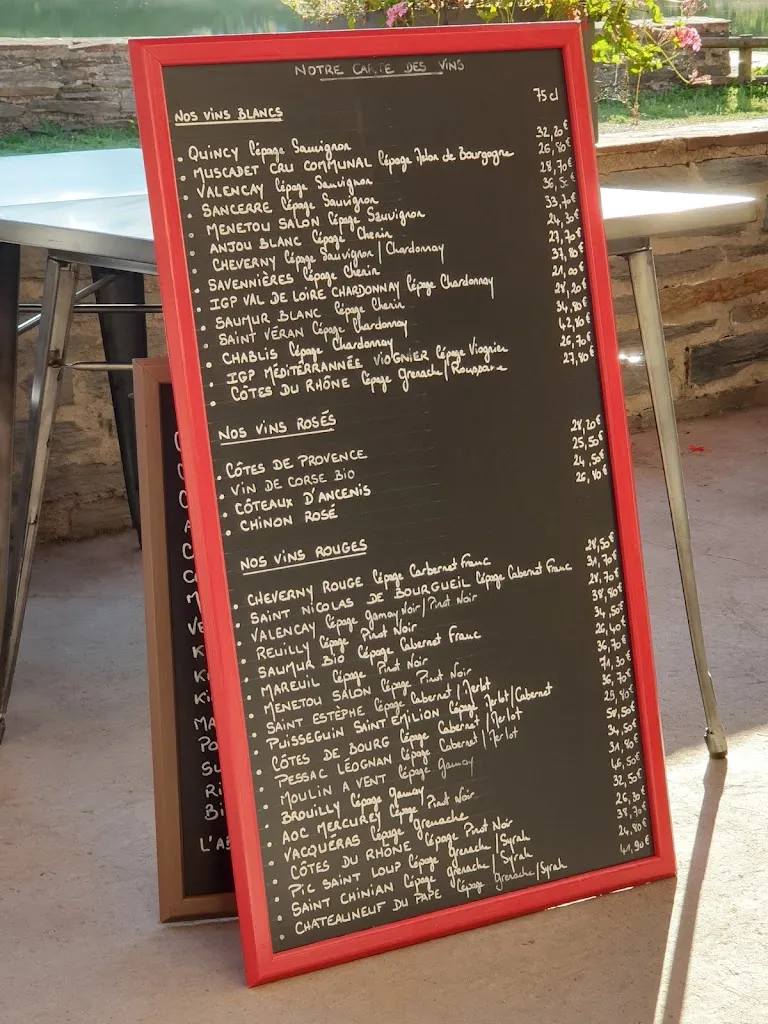 NOTRE CARTE DES VINS
75 cl
NOS VINS BLANCS
• QUINCY Cépage Sauvignon 32,20€
• MUSCADET CRU COMMUNAL Cépage Melon de Bourgogne 26,80€
• VALENCAY Cépage Sauvignon 28,70€
• SANCERRE Cépage Sauvignon
• MENETOU SALON Cépage Sauvignon 33,70€
• ANJOU BLANC Cépage Chenin 24,30€
• CHEVERNY Cépage Sauvignon / Chardonnay 27,70€
• SAVENNIÈRES Cépage Chenin 37,80€
• IGP VAL DE LOIRE CHARDONNAY Cépage Chardonnay 21,00€
• SAUMUR BLANC Cépage Chenin 28,20€
• SAINT VÉRAN Cépage Chardonnay 34,80€
• CHABLIS Cépage Chardonnay 42,80€
• IGP MÉDITÉRRANNÉE VIOGNIER Cépage Viognier 26,70€
• CÔTES DU RHÔNE Cépage Grenache / 27,80€
NOS VINS ROSÉS
• CÔTES DE PROVENCE 28,20€
• VIN DE CORSE BIO 25,50€
• CÔTEAUX D'ANCENIS 24,50€
• CHINON ROSÉ 26,80€
NOS VINS ROUGES
• CHEVERNY ROUGE Cépage Carbernet Franc 28,50€
• SAINT NICOLAS DE BOURGUEIL Cépage Cabernet Franc 31,70€
• VALENCAY Cépage Gamay Noir / Pinot Noir 28,70€
• REUILLY Cépage Pinot Noir 38,80€
• SAUMUR BIO Cépage Cabernet Franc 34,50€
• MAREUIL Cépage Pinot Noir 26,40€
• MENETOU SALON Cépage Pinot Noir 36,70€
• SAINT ESTÈPHE Cépage Cabernet / Merlot 71,30€
• PUISSEGUIN SAINT EMILION Cépage Merlot / Cabernet 36,70€
• CÔTES DE BOURG Cépage Cabernet / Merlot 29,80€
• PESSAC LÉOGNAN Cépage Cabernet / Merlot 58,50€
• MOULIN A VENT Cépage Gamay 34,50€
• BROUILLY Cépage Gamay 31,80€
• AOC MERCUREY Cépage Pinot Noir 46,50€
• VACQUÉRAS Cépage Grenache 32,50€
• CÔTES DU RHÔNE Cépage Pinot Noir 26,30€
• PIC SAINT LOUP Cépage Grenache / Syrah 38,70€
• SAINT CHINIAN Cépage Grenache / Syrah 24,80€
• CHATEAUNEUF DU PAPE Cépage Grenache / Syrah 41,90€